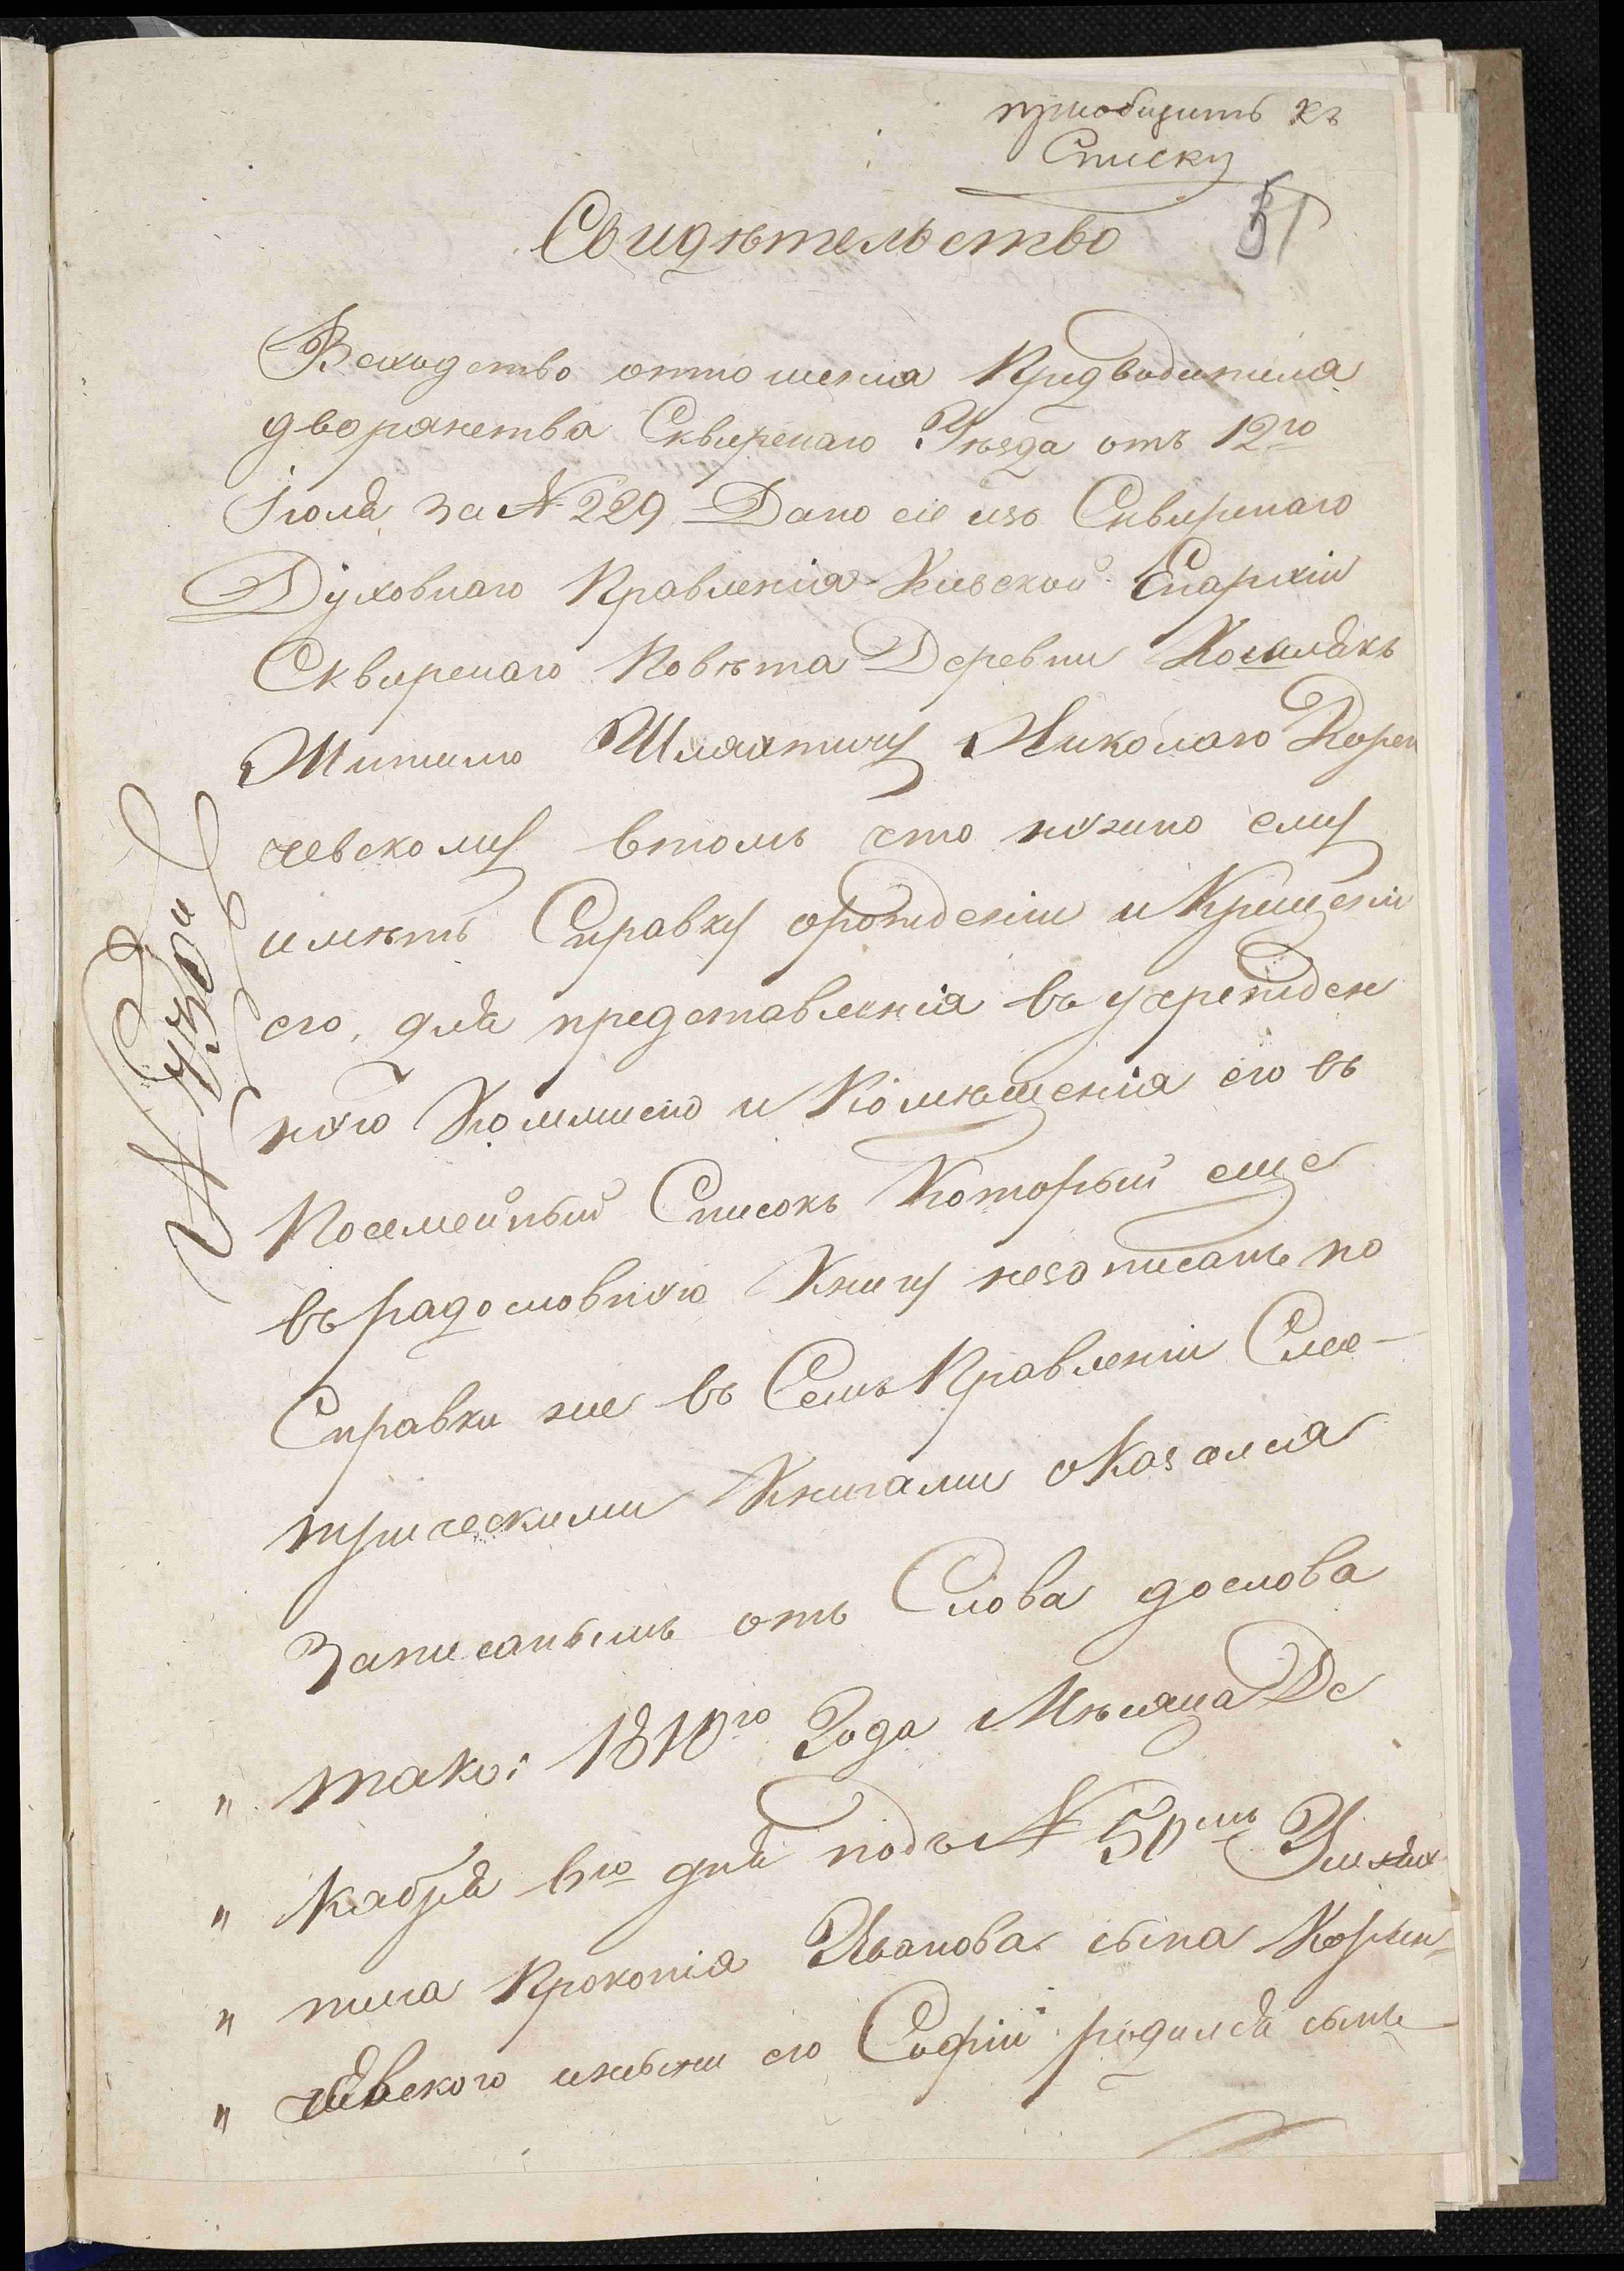 приобщить къ
Списку
51
Свидѣтельство
Веходство отношенія Предводителя
дворянства Сквирскаго Уѣзда отъ 12го
Іюля за № 229 Дано сіе изъ Сквирскаго
Духовнаго Правленія Кіевской Епархіи
Сквирскаго Повѣта Деревни
Жителю Шляхтичу Николаю Корен
чевскому втомъ что нужно ему
имѣть Справку орожденіи и Крещеніи
его, для представленія въ учрежден
ную Коммисію и Помѣщенія его въ
Посемейный Списокъ Который еще
въ радословную Книгу незаписанъ по
Справки же въ Семъ Правленіи Сме-
трическими Книгами оказался
Записанымъ отъ Слова дослова
„ тако: 1810го Года Мѣсяца Де
„ кабря 6го дня подъ № 50мъ Шлях
„ тича Прокопія Иванова сына Корен-
„ чевского ижены его Софіи родился сынъ
№ 430й